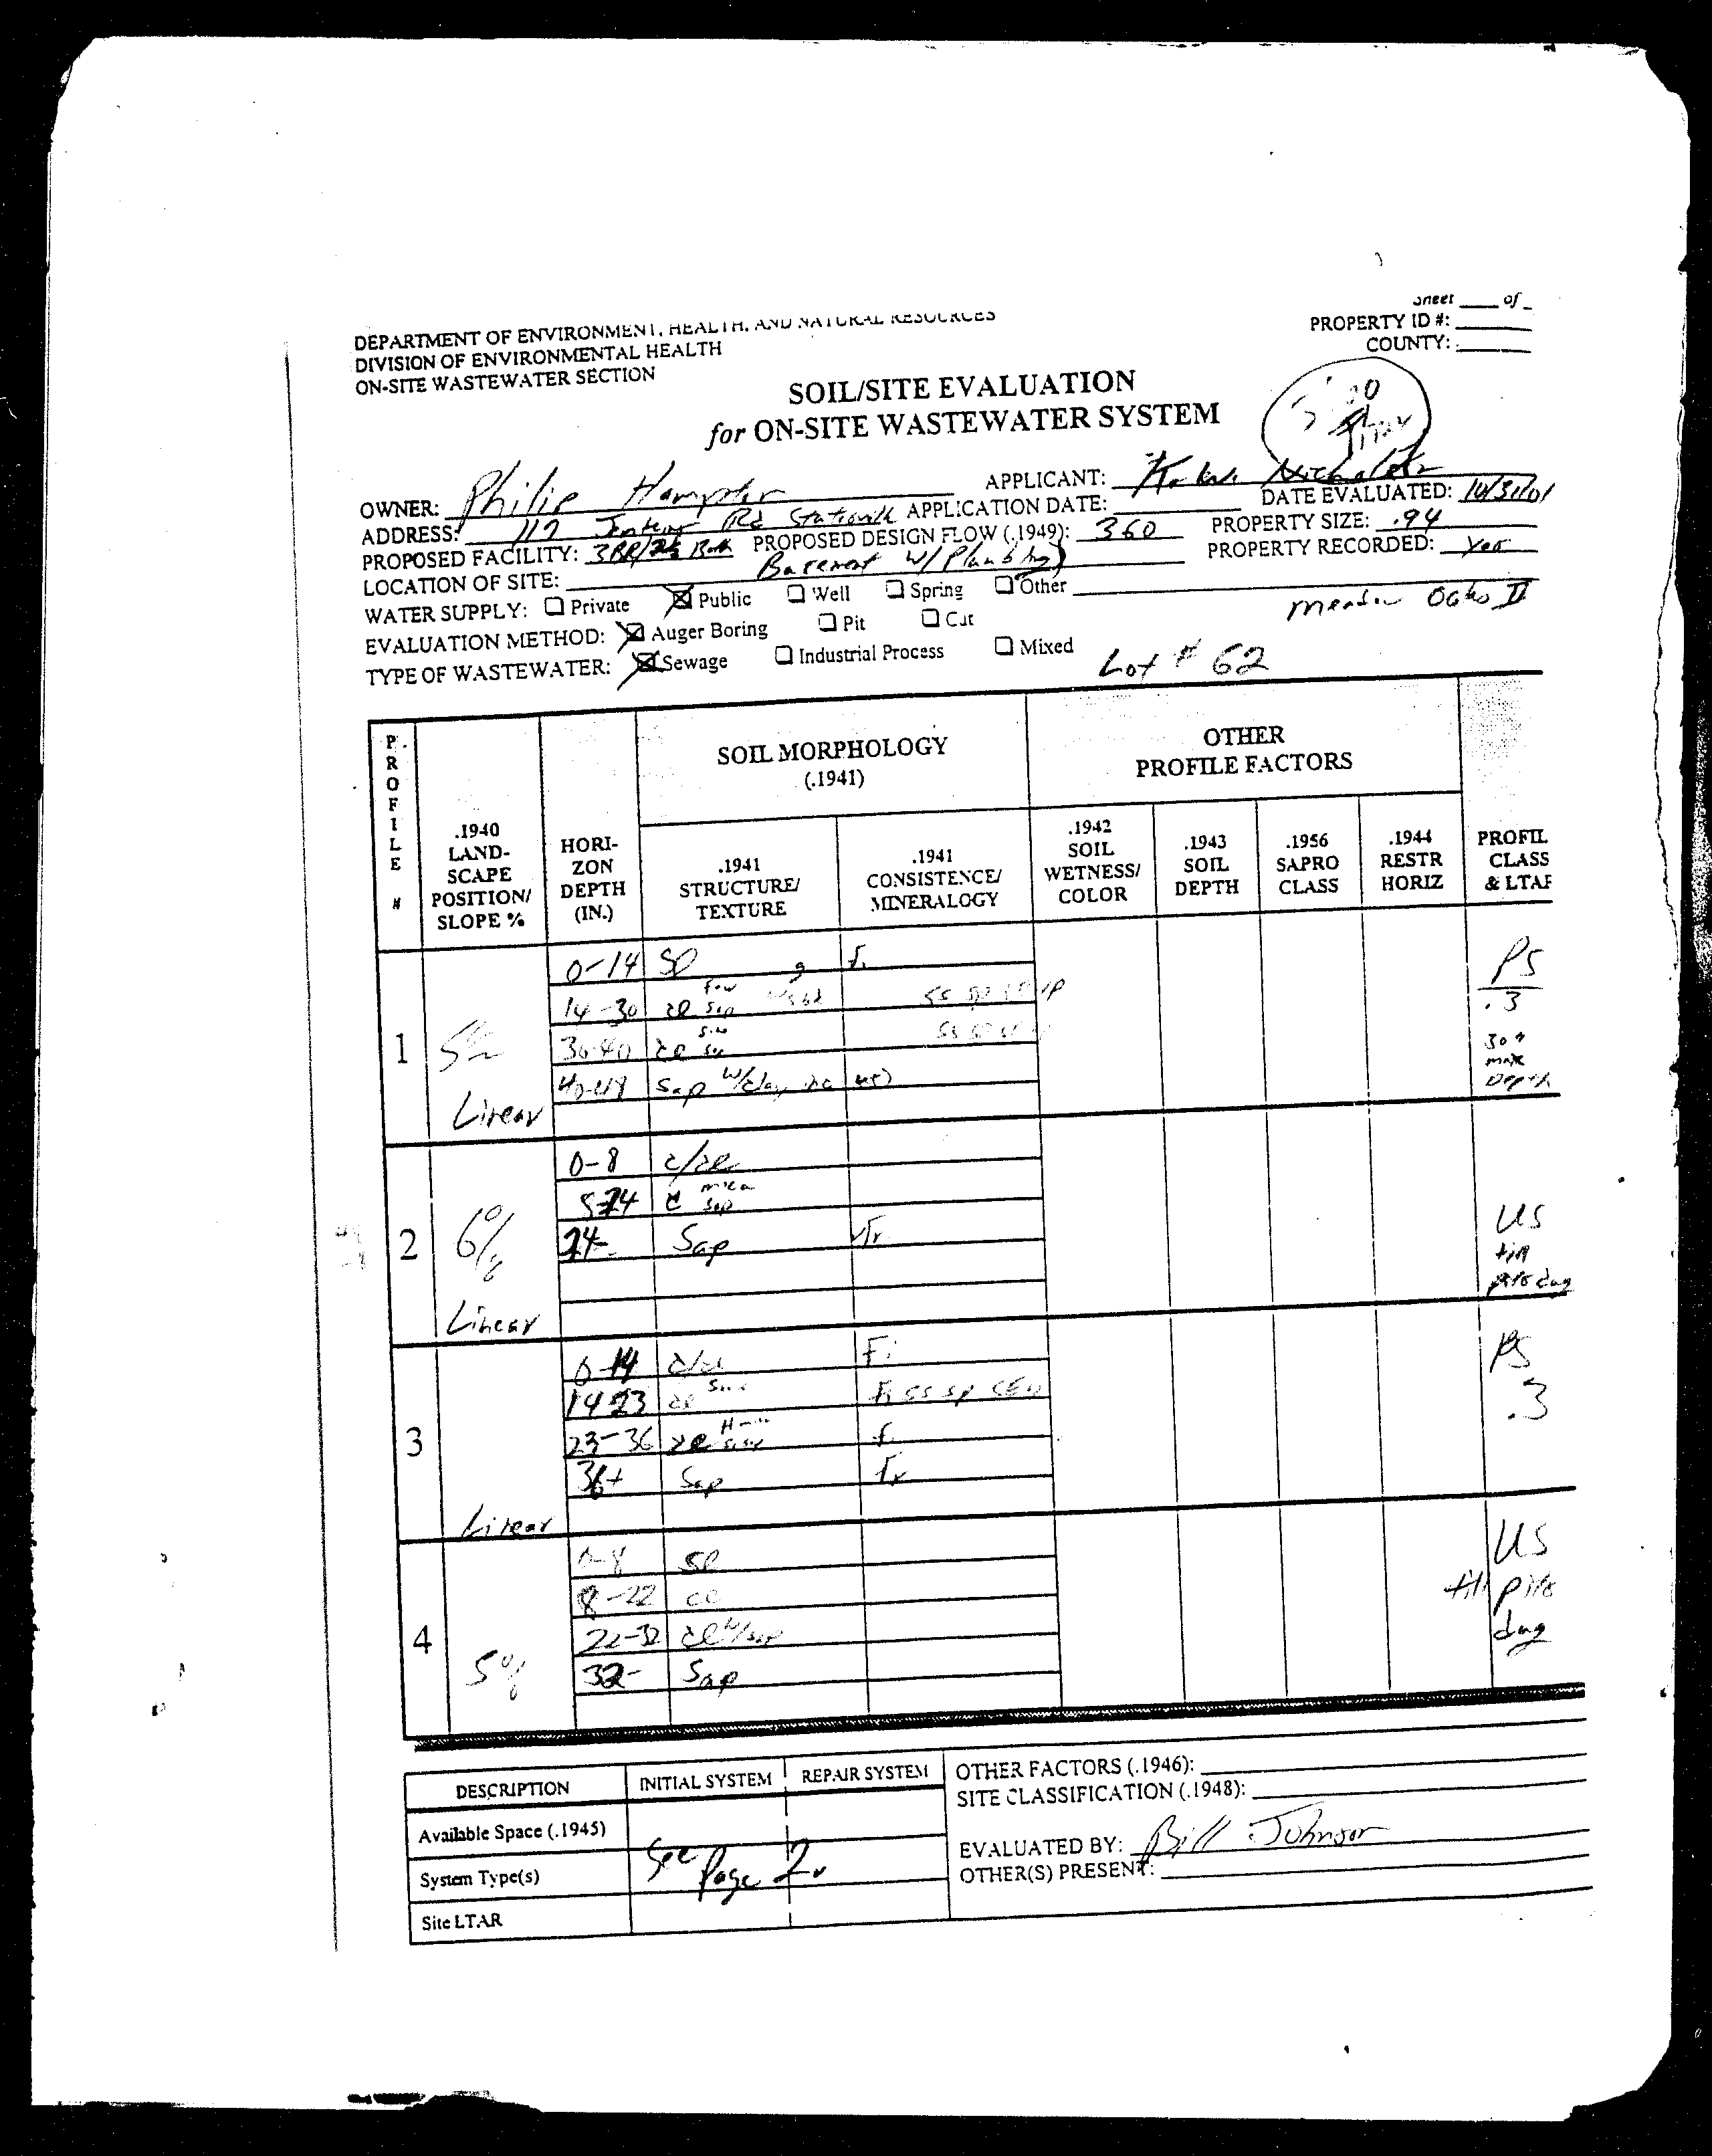 Sheet ____ of _
DEPARTMENT OF ENVIRONMENT, HEALTH, AND NATURAL RESOURCES
PROPERTY ID #:
DIVISION OF ENVIRONMENTAL HEALTH
COUNTY:
ON-SITE WASTEWATER SECTION
SOIL/SITE EVALUATION
for ON-SITE WASTEWATER SYSTEM
OWNER: Philip APPLICANT:
ADDRESS: 117 Rd APPLICATION DATE: DATE EVALUATED: 10/31/01
PROPOSED FACILITY: 3BR/2½ Bath PROPOSED DESIGN FLOW (.1949): 360 PROPERTY SIZE: .94
LOCATION OF SITE: Basement w/ Plumbing PROPERTY RECORDED: Yes
WATER SUPPLY: Private Public Well Spring Other
Oaks II
EVALUATION METHOD: Auger Boring Pit Cut
TYPE OF WASTEWATER: Sewage Industrial Process Mixed Lot # 62
PROFILE #
.1940 LAND-SCAPE POSITION/ SLOPE %
HORI-ZON DEPTH (IN.)
SOIL MORPHOLOGY (.1941)
.1941 STRUCTURE/ TEXTURE
.1941 CONSISTENCE/ MINERALOGY
OTHER PROFILE FACTORS
.1942 SOIL WETNESS/ COLOR
.1943 SOIL DEPTH
.1956 SAPRO CLASS
.1944 RESTR HORIZ
PROFIL CLASS & LTAR
1
Linear
0-14 Sl
14-30 cl few sap
30-40 cl
40-48 Sap w/clay
PS
.3
30" max Depth
2
6%
Linear
0-8 c/cl
8-24 c mica sap
24- Sap vfr
US
till
pits dug
3
Linear
0-14 c/cl Fi
14-23 cl
23-36 cl
36+ Sap fr
PS
.3
4
5%
0-8 Sl
8-22 cl
22-32 cl w/sap
32- Sap
US
till pits
dug
DESCRIPTION INITIAL SYSTEM REPAIR SYSTEM
Available Space (.1945)
System Type(s) See Page 2.
Site LTAR
OTHER FACTORS (.1946):
SITE CLASSIFICATION (.1948):
EVALUATED BY: Bill Johnson
OTHER(S) PRESENT: